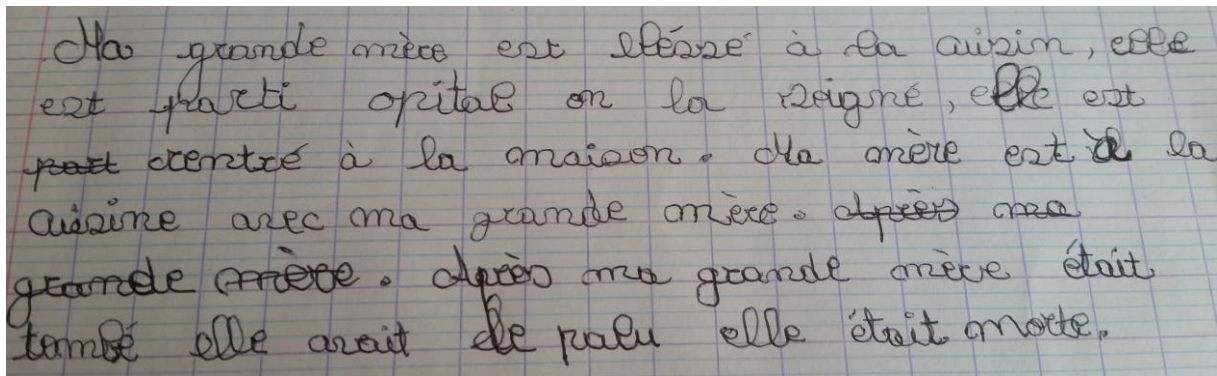 Ma grande mère est bléssé à la cuisin, elle
est parti opital on la soigné, elle est
part rentré à la maison. Ma mère est à la
cuisine avec ma grande mère. Après ma
grande mère. Après ma grande mère était
tombé elle avait de palu elle était morte.